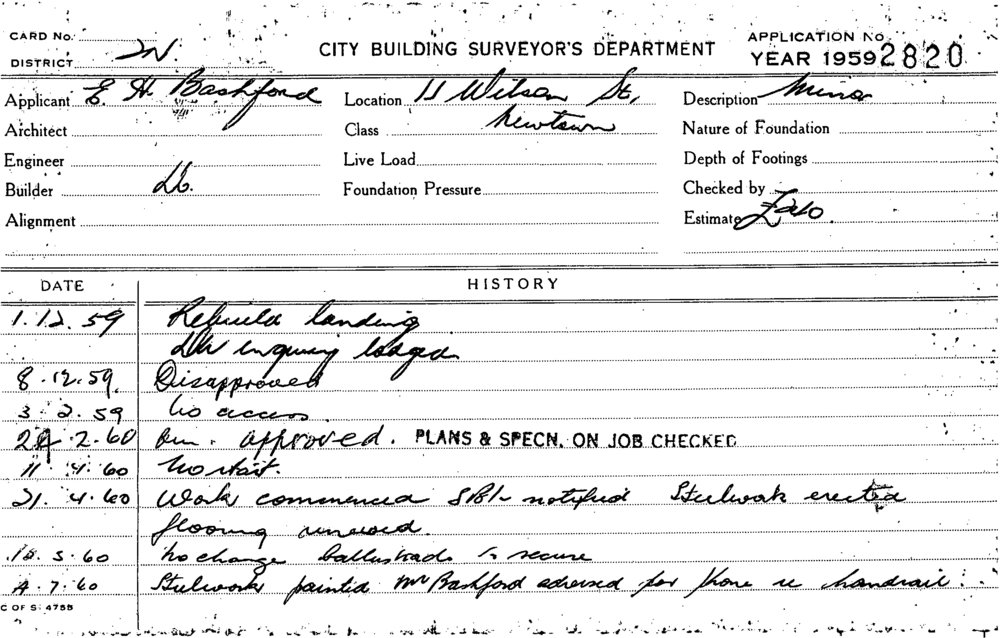 CARD No.
DISTRICT 2N.
CITY BUILDING SURVEYOR'S DEPARTMENT
APPLICATION No 2820
YEAR 1959
Applicant E H. Bashford Location 11 Wilson St, Description Minor
Architect Class Newtown Nature of Foundation
Engineer Live Load Depth of Footings
Builder Do. Foundation Pressure Checked by
Alignment Estimate
DATE HISTORY
1.12.59 Rebuild landing
inquiry lodged
8.12.59. Disapproved
3.2.59 No access
2.60 approved. PLANS & SPECN. ON JOB CHECKED
11.4.60 No start.
21.4.60 Work commenced notified Steelwork erected
flooring renewed.
5.60 No change ballustrade secure
4.7.60 Steelwork painted Mr Bashford advised phone re handrail.
C OF S. 475B